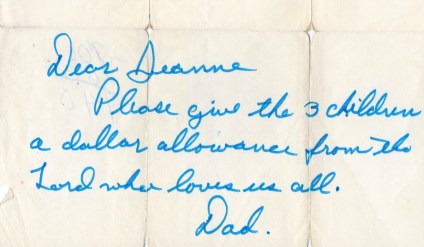 Dear Deanne
Please give the 3 children
a dollar allowance from the
Lord who loves us all.
Dad.